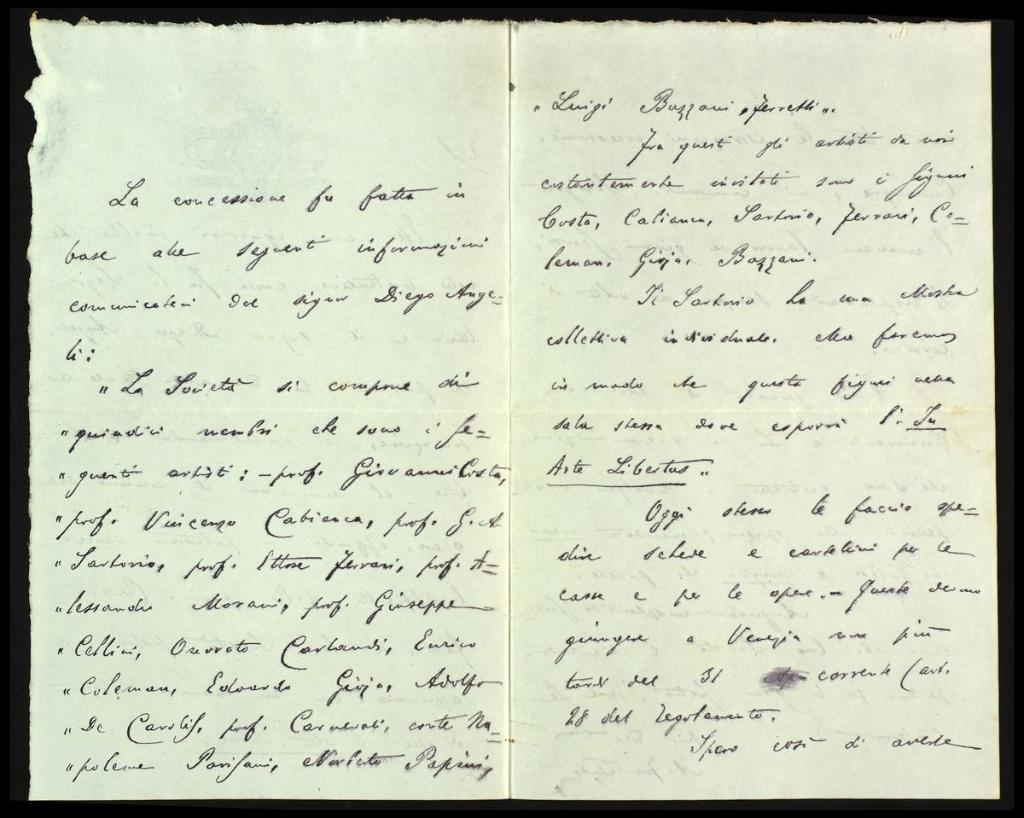 La concessione fu fatta in
base alle seguenti informazioni
comunicateci dal signor Diego Ange=
li:
"La Società si compone di
"quindici membri che sono i se=
"guenti artisti: - prof. Giovanni Costa,
"prof. Vincenzo Cabianca, prof. G. A
"Sartorio, prof. Ettore Ferrari, prof. A=
"lessandro Morani, prof. Giuseppe
"Cellini, Onorato Carlandi, Enrico
"Coleman, Edoardo Gioja, Adolfo
"De Carolis, prof. Carnevali, conte Na=
"poleone Parisani, Norberto Pazzini,
"Luigi Bazzani, Ferretti".
Fra questi gli artisti da noi
costantemente invitati sono i signori
Costa, Cabianca, Sartorio, Ferrari, Co=
leman, Gioja, Bazzani.
Il Sartorio ha una Mostra
collettiva individuale. Ma faremo
in modo che questa figuri nella
sala stessa dove esporrà l'"In
Arte Libertas".
Oggi stesso le faccio spe=
dire schede e cartellini per le
casse e per le opere. - Queste devono
giungere a Venezia non più
tardi del 31 corrente (art.
28 del regolamento.
Spero così di averle